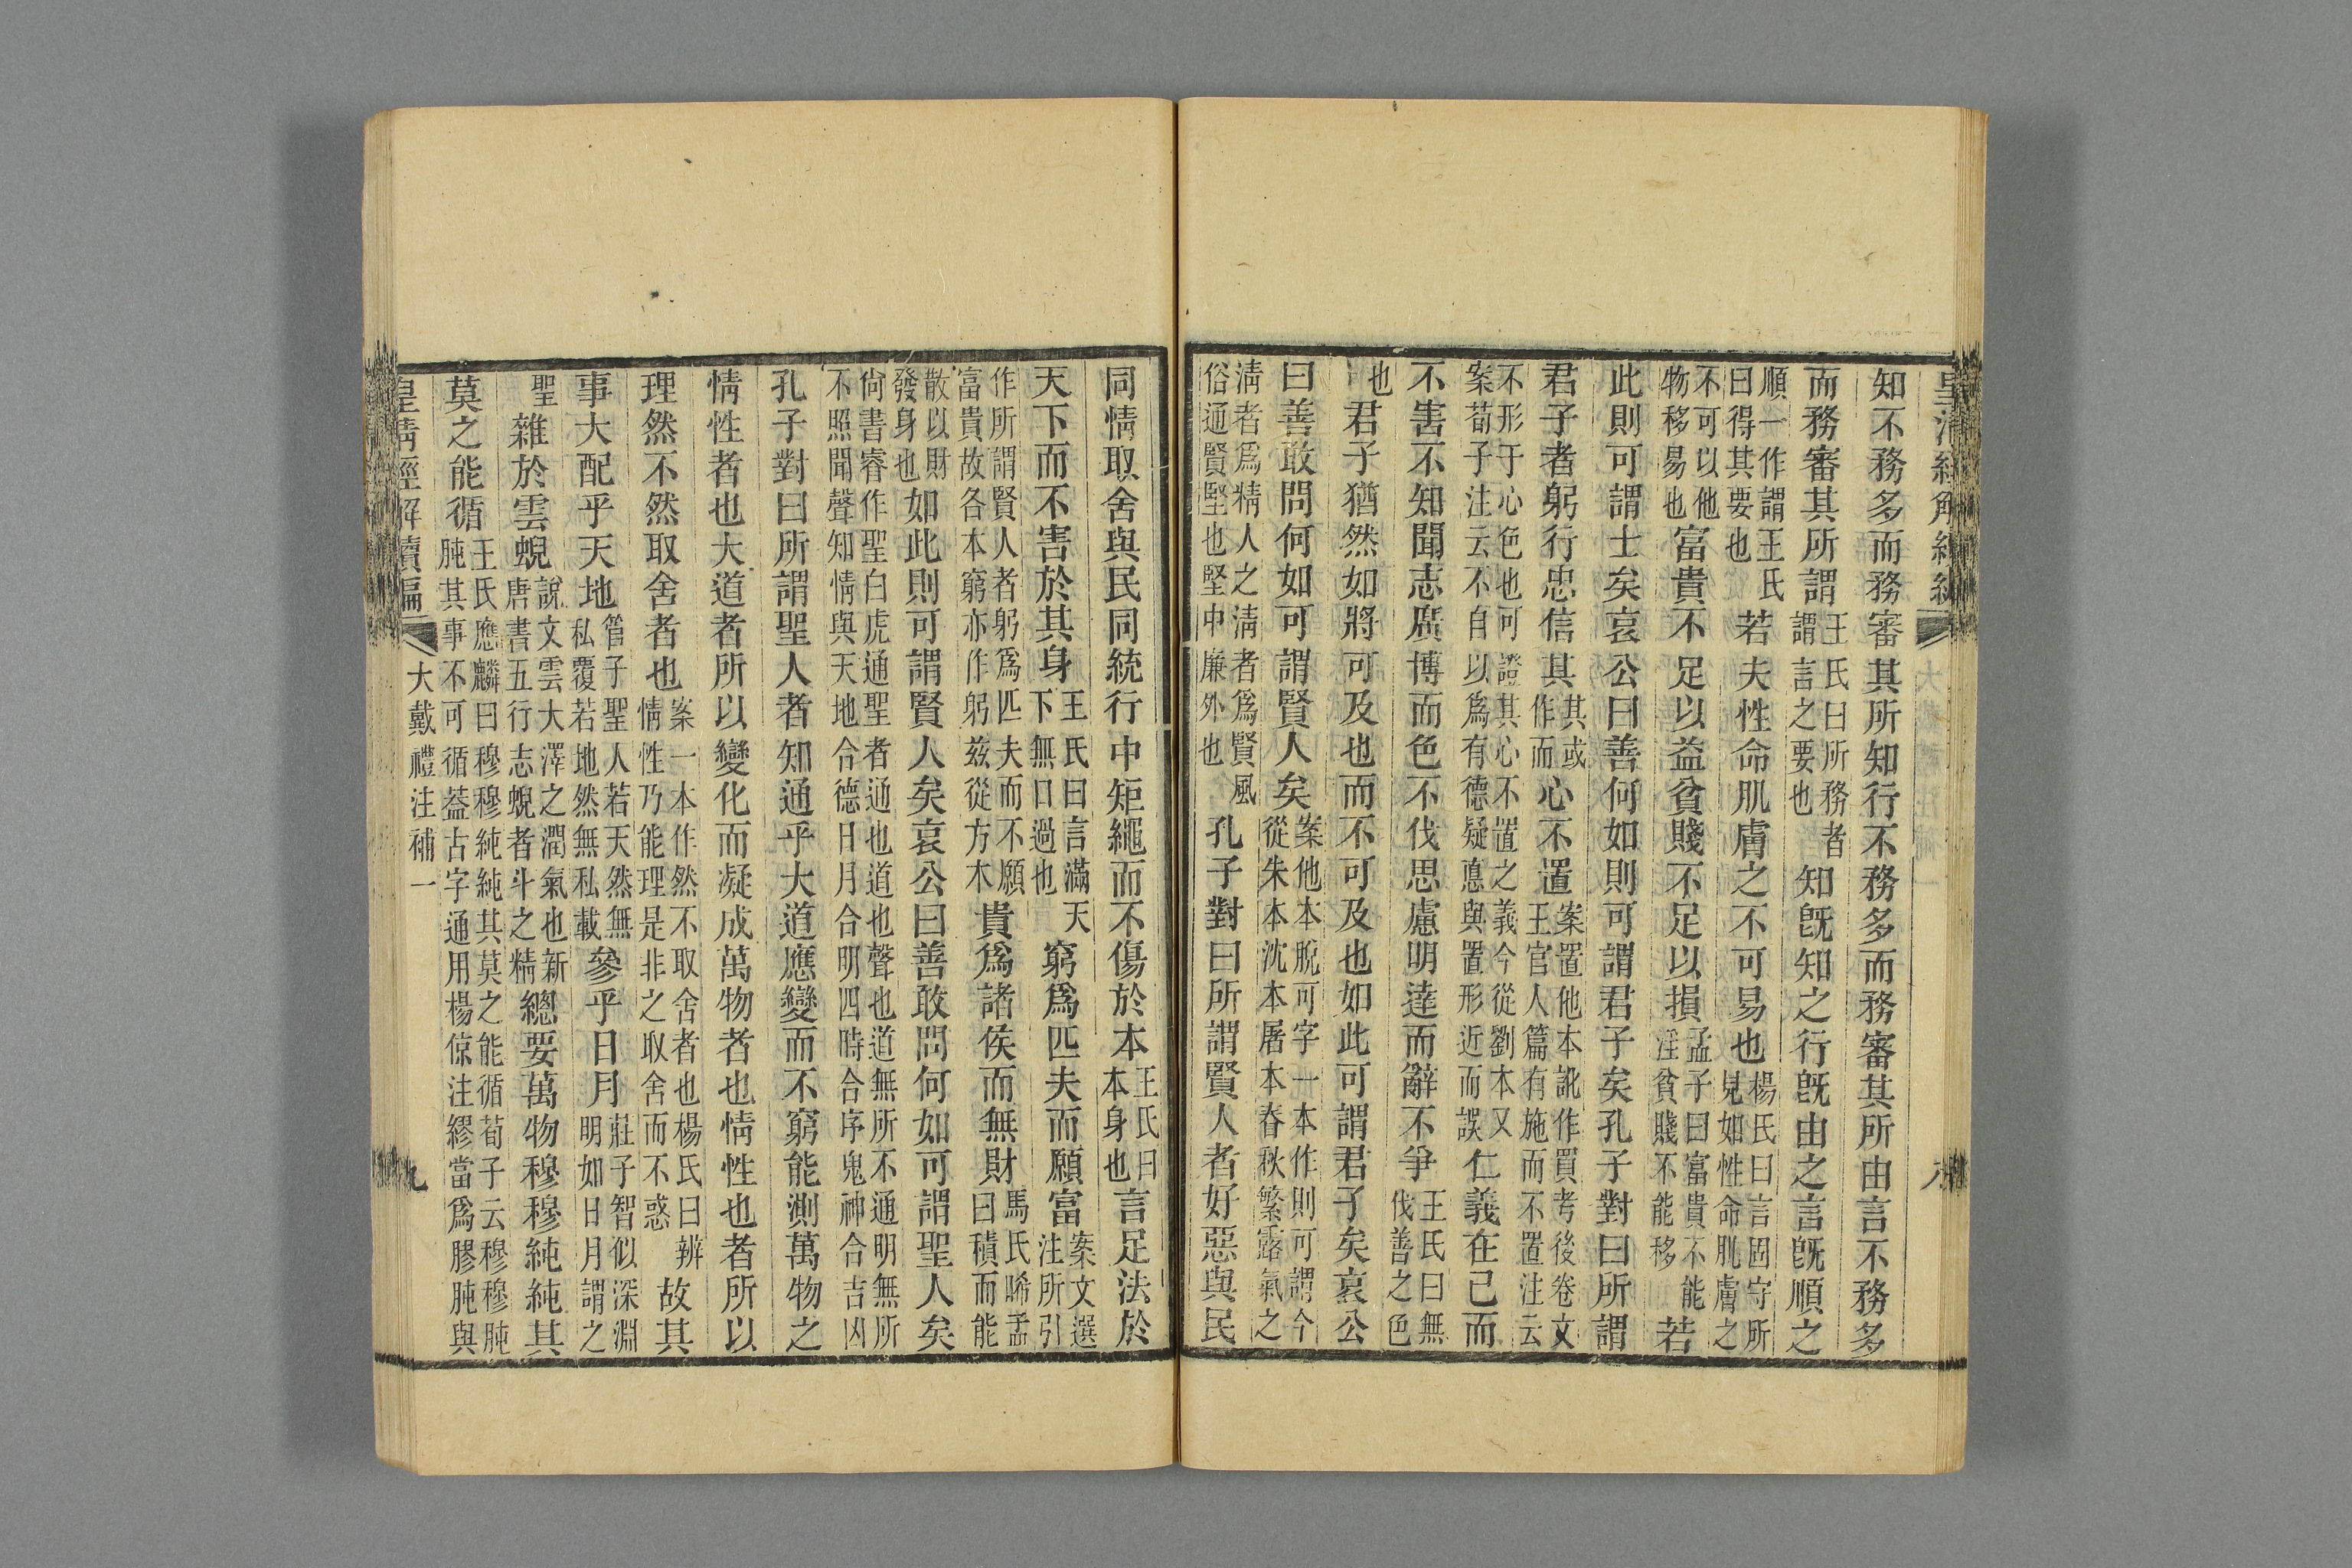 知不務多而務審其所知行不務多而務審其所由言不務多
而務審其所謂王氏曰所務者謂言之要也知旣知之行旣由之言旣順之
順一作謂王氏曰得其要也若夫性命肌膚之不可易也楊氏曰言固守所見如性命肌膚之
不可以他物移易也富貴不足以益貧賤不足以損孟子曰富貴不能淫貧賤不能移若
此則可謂士矣哀公曰善何如則可謂君子矣孔子對曰所謂
君子者躬行忠信其其或作而心不置案置他本訛作買考後卷文王官人篇有施而不置注云
不形于心色也可證其心不置之義今從劉本又案荀子注云不自以爲有德疑悳與置形近而誤仁義在己而
不害不知聞志廣博而色不伐思慮明達而辭不爭王氏曰無伐善之色
也君子猶然如將可及也而不可及也如此可謂君子矣哀公
曰善敢問何如可謂賢人矣案他本脫可字一本作則可謂今從朱本沈本屠本春秋繁露氣之
清者爲精人之清者爲賢風俗通賢堅也堅中廉外也孔子對曰所謂賢人者好惡與民
同情取舍與民同統行中矩繩而不傷於本王氏曰本身也言足法於
天下而不害於其身王氏曰言滿天下無口過也窮爲匹夫而願富案文選注所引
作所謂賢人者躬爲匹夫而不願富貴故各本窮亦作躬茲從方木貴爲諸侯而無財馬氏晞孟曰積而能
散以財發身也如此則可謂賢人矣哀公曰善敢問何如可謂聖人矣
尙書睿作聖白虎通聖者通也道也聲也道無所不通明無所不照聞聲知情與天地合德日月合明四時合序鬼神合吉凶
孔子對曰所謂聖人者知通乎大道應變而不窮能測萬物之
情性者也大道者所以變化而凝成萬物者也情性也者所以
理然不然取舍者也案一本作然不取舍者也楊氏曰辨情性乃能理是非之取舍而不惑故其
事大配乎天地管子聖人若天然無私覆若地然無私載參乎日月莊子智似深淵明如日月謂之
聖雜於雲蜺說文雲大澤之潤氣也新唐書五行志蜺者斗之精總要萬物穆穆純純其
莫之能循王氏應麟曰穆穆純純其莫之能循荀子云穆穆肫肫其事不可循葢古字通用楊倞注繆當爲膠肫與
皇清經解續編 大戴禮注補一 九